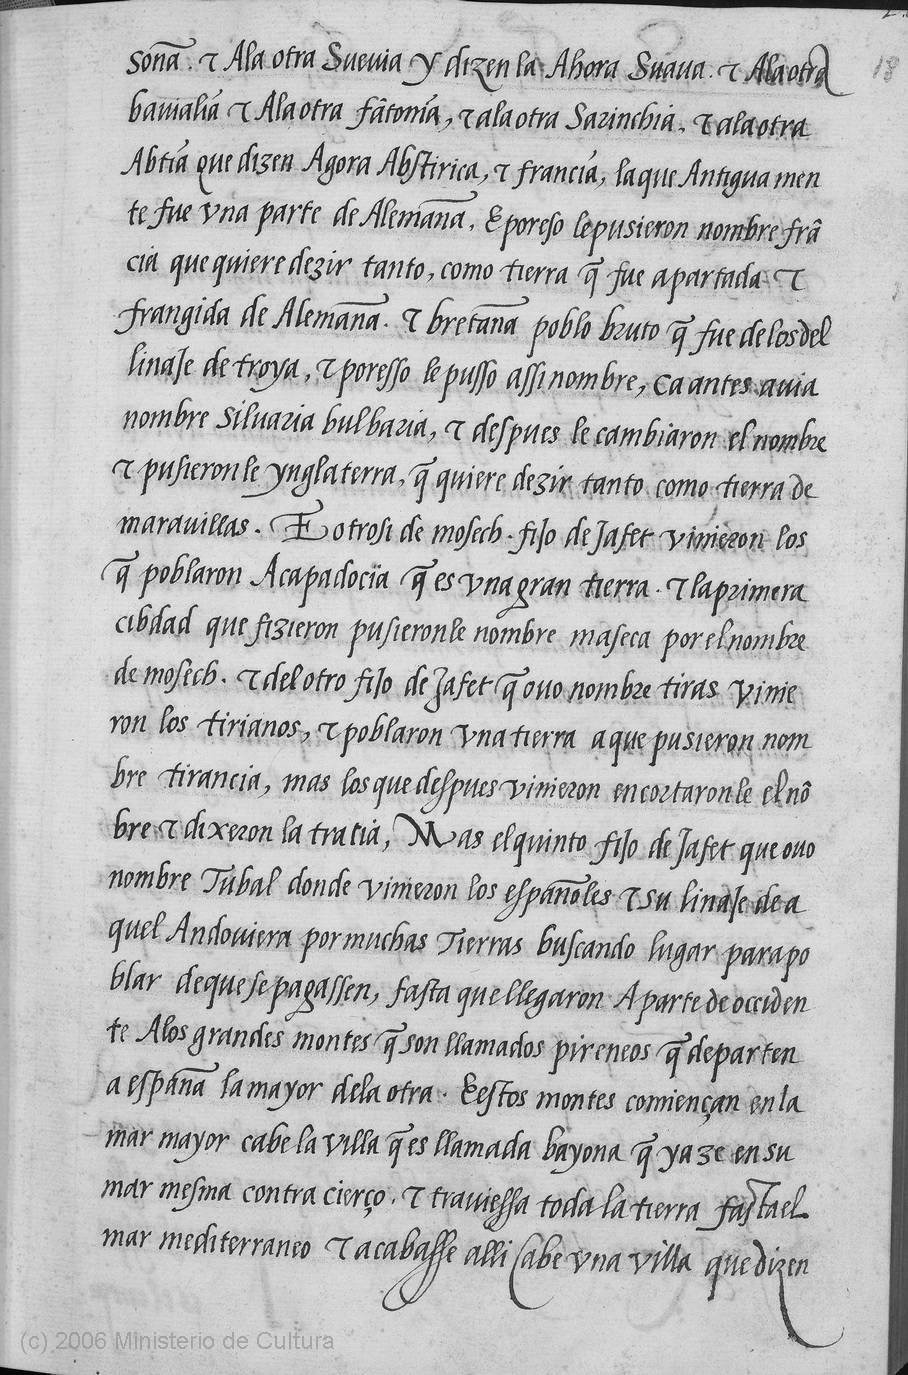 18
sonā. τ Ala otra Suevia y dizen la Ahora Suava. τ Ala otra
bavialiā τ Ala otra fātoniā, τ ala otra Sarinchia, τ ala otra
Abtiā que dizen Agora Abstirica, τ franciā, la que Antigua men
te fue vna parte de Alemāna, E por eso le pusieron nombre frā
cia que quiere dezir tanto, como tierra q̄ fue apartada τ
frangida de Alemāna. τ bretāna poblo bruto q̄ fue de los del
linaje de troya, τ poresso le pusso assi nombre, Ca antes avia
nombre Siluaria bulbaria, τ despues le cambiaron el nombre
τ pusieronle ynglaterra, q̄ quiere dezir tanto como tierra de
maravillas. E otrosi de mosech. fijo de Jafet vinieron los
q̄ poblaron Acapadocia q̄ es vna gran tierra. τ la primera
cibdad que fizieron pusieronle nombre maseca por el nombre
de mosech. τ del otro fijo de Jafet q̄ ouo nombre tiras vinie
ron los tirianos, τ poblaron vna tierra a que pusieron nom
bre tirancia, mas los que despues vinieron encortaronle el nō
bre τ dixeron la tratia, Mas el quinto fijo de Jafet que ouo
nombre Tubal donde vinieron los espāñoles τ su linaje de a
quel Andouiera por muchas Tierras buscando lugar para po
blar de que se pagassen, fasta que llegaron A parte de occiden
te Alos grandes montes q̄ son llamados pireneos q̄ departen
a espāna la mayor dela otra. E estos montes comiençan en la
mar mayor cabe la villa q̄ es llamada bayona q̄ yaze en su
mar mesma contra cierço. τ traviessa toda la tierra fasta el
mar mediterraneo τ acabasse alli Cabe vna villa que dizen
(c) 2006 Ministerio de Cultura